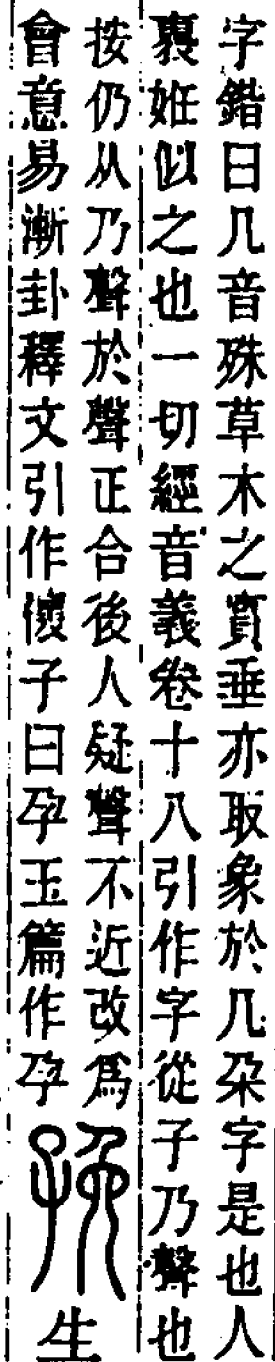 字鍇曰几音殊草木之實垂亦取象於几朶字是也人
褢妊似之也一切經音義卷十八引作字從子乃聲也
按仍从乃聲於聲正合後人疑聲不近改爲
會意易漸卦釋文引作懷子曰孕玉篇作孕
㝃生